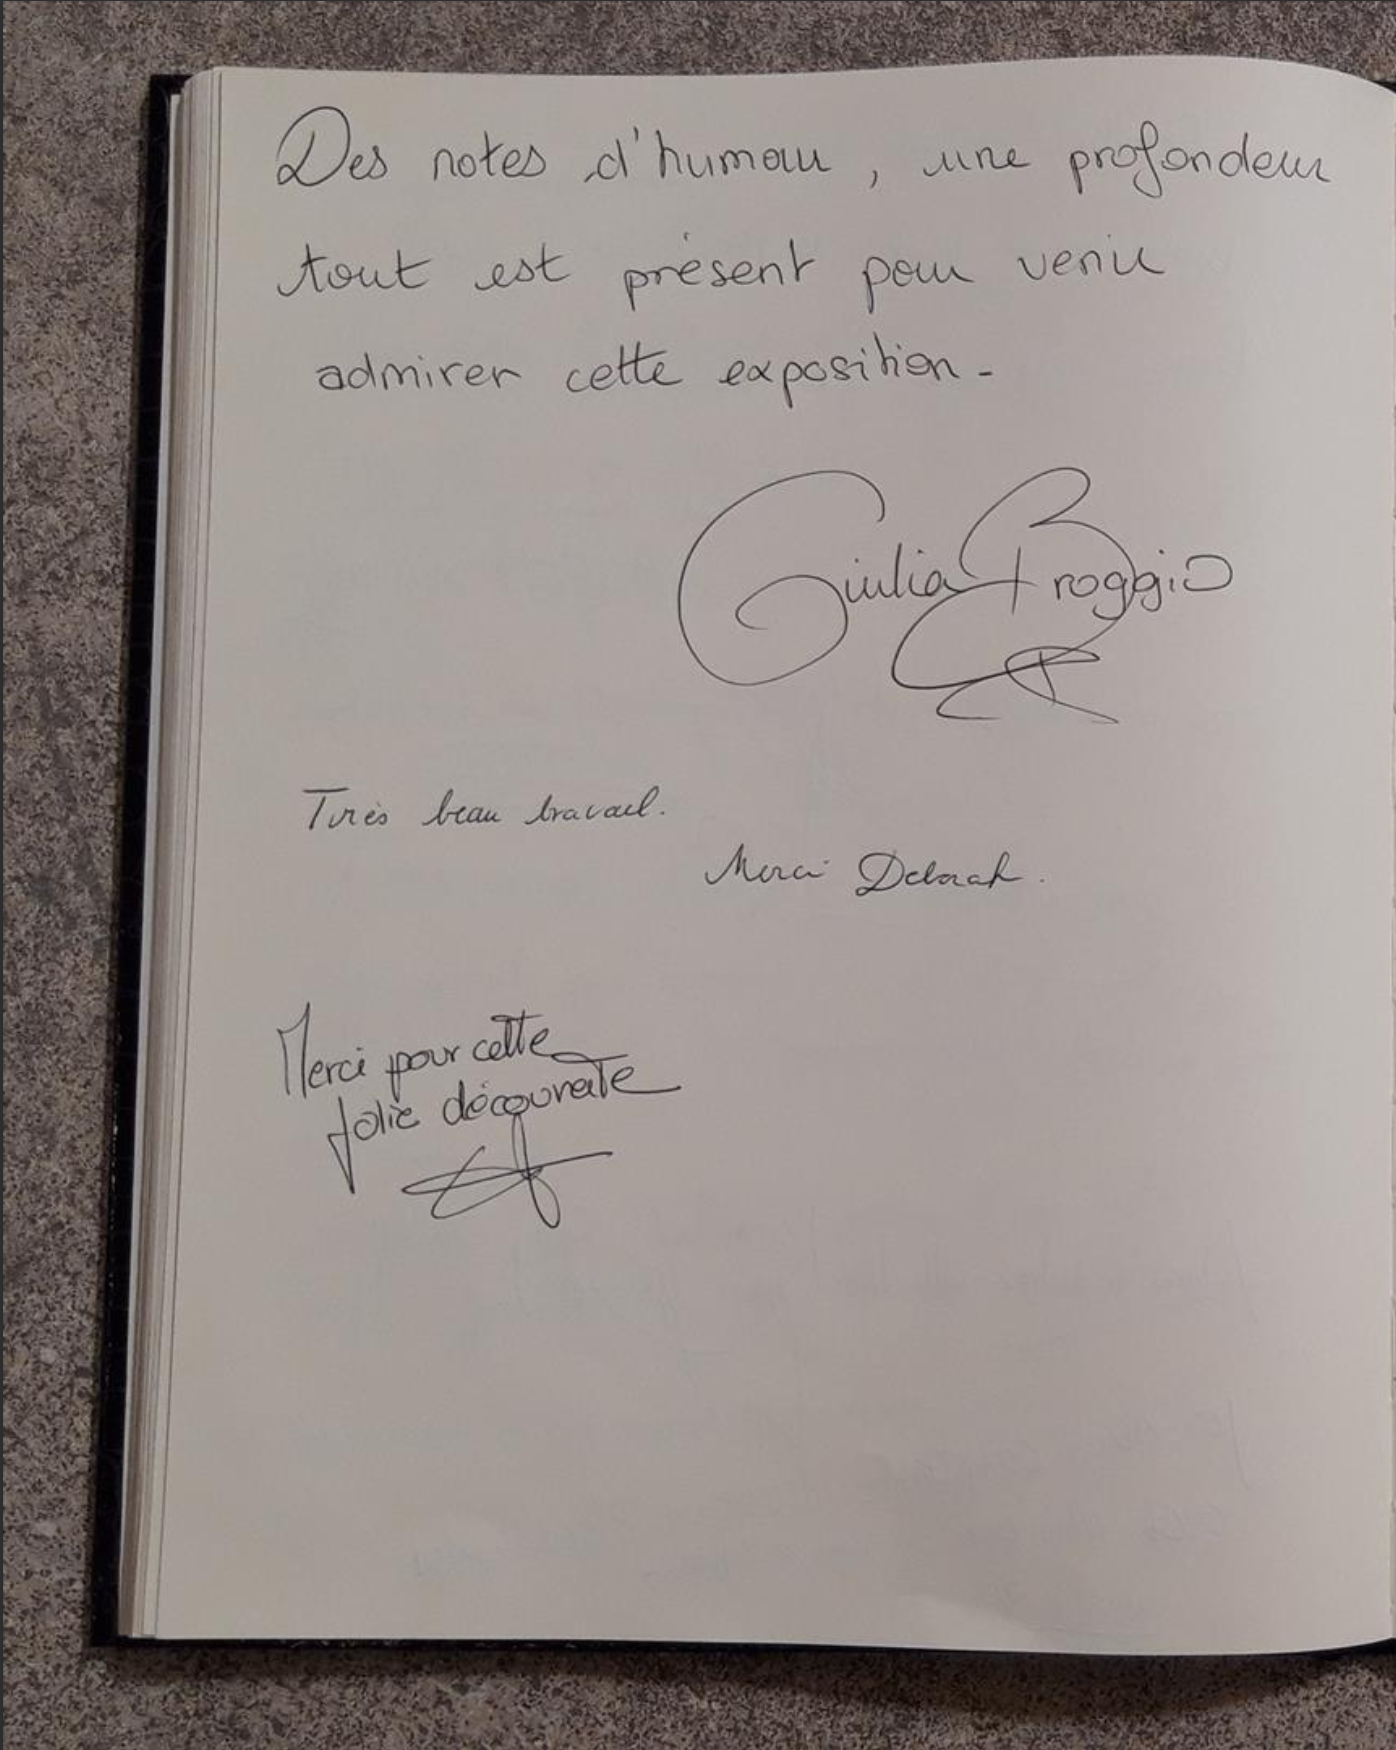 Des notes d'humour, une profondeur
tout est présent pour venir
admirer cette exposition -
Giulia Broggio
Très beau travail.
Merci Deborah.
Merci pour cette
jolie découverte